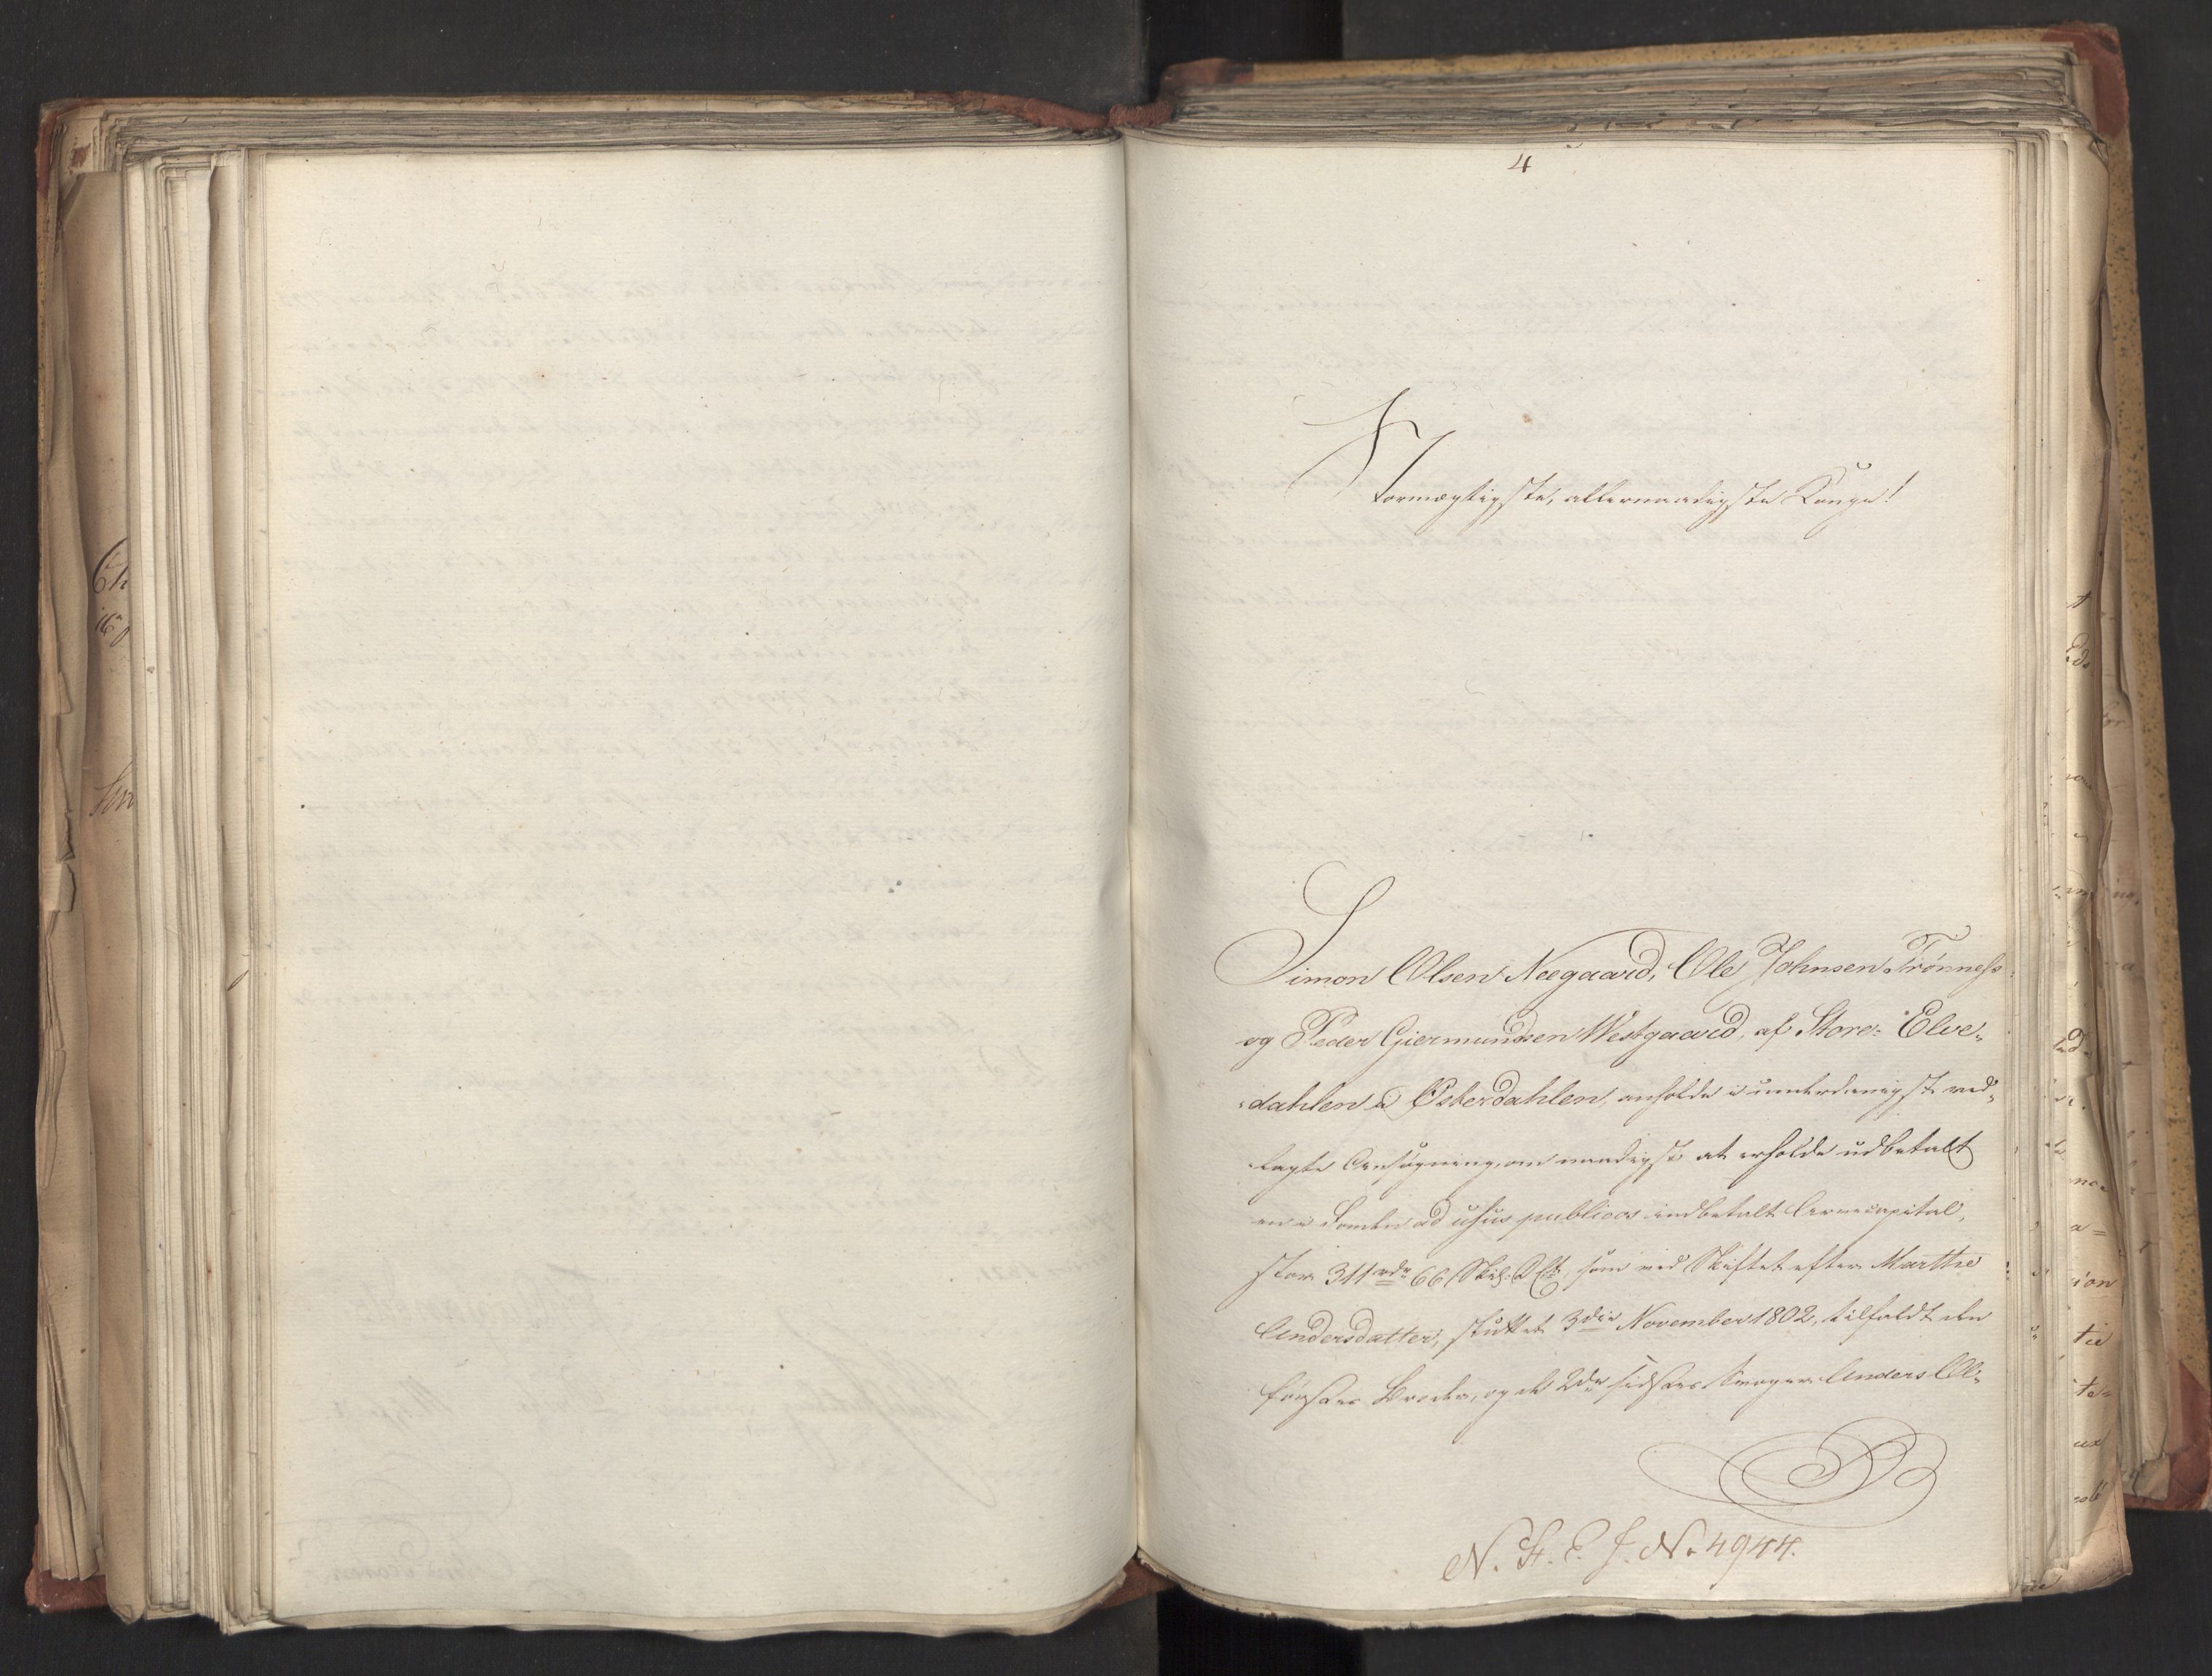 4
Stormægtigste, allernaadigste Konge!
Simon Olsen Neegaard, Ole Johnsen Trønness
og Peder Giermundsen Westgaard, af Store-Elve-
dahlen i Østerdahlen, anholde i underdanigst ved-
lagte Ansøgning, om naadigst at erholde udbetalt
en i Fonden ad usus publicos indbetalt Arvecapital,
stor 311 rdr 66 Skil: D. C., som ved Skiftet efter Marthe
Andersdatter, sluttet 3die November 1802, tilfaldt den
førstes Broder, og de 2de sidstes Svoger Anders Ol-
N. St. E. J. No 4944.